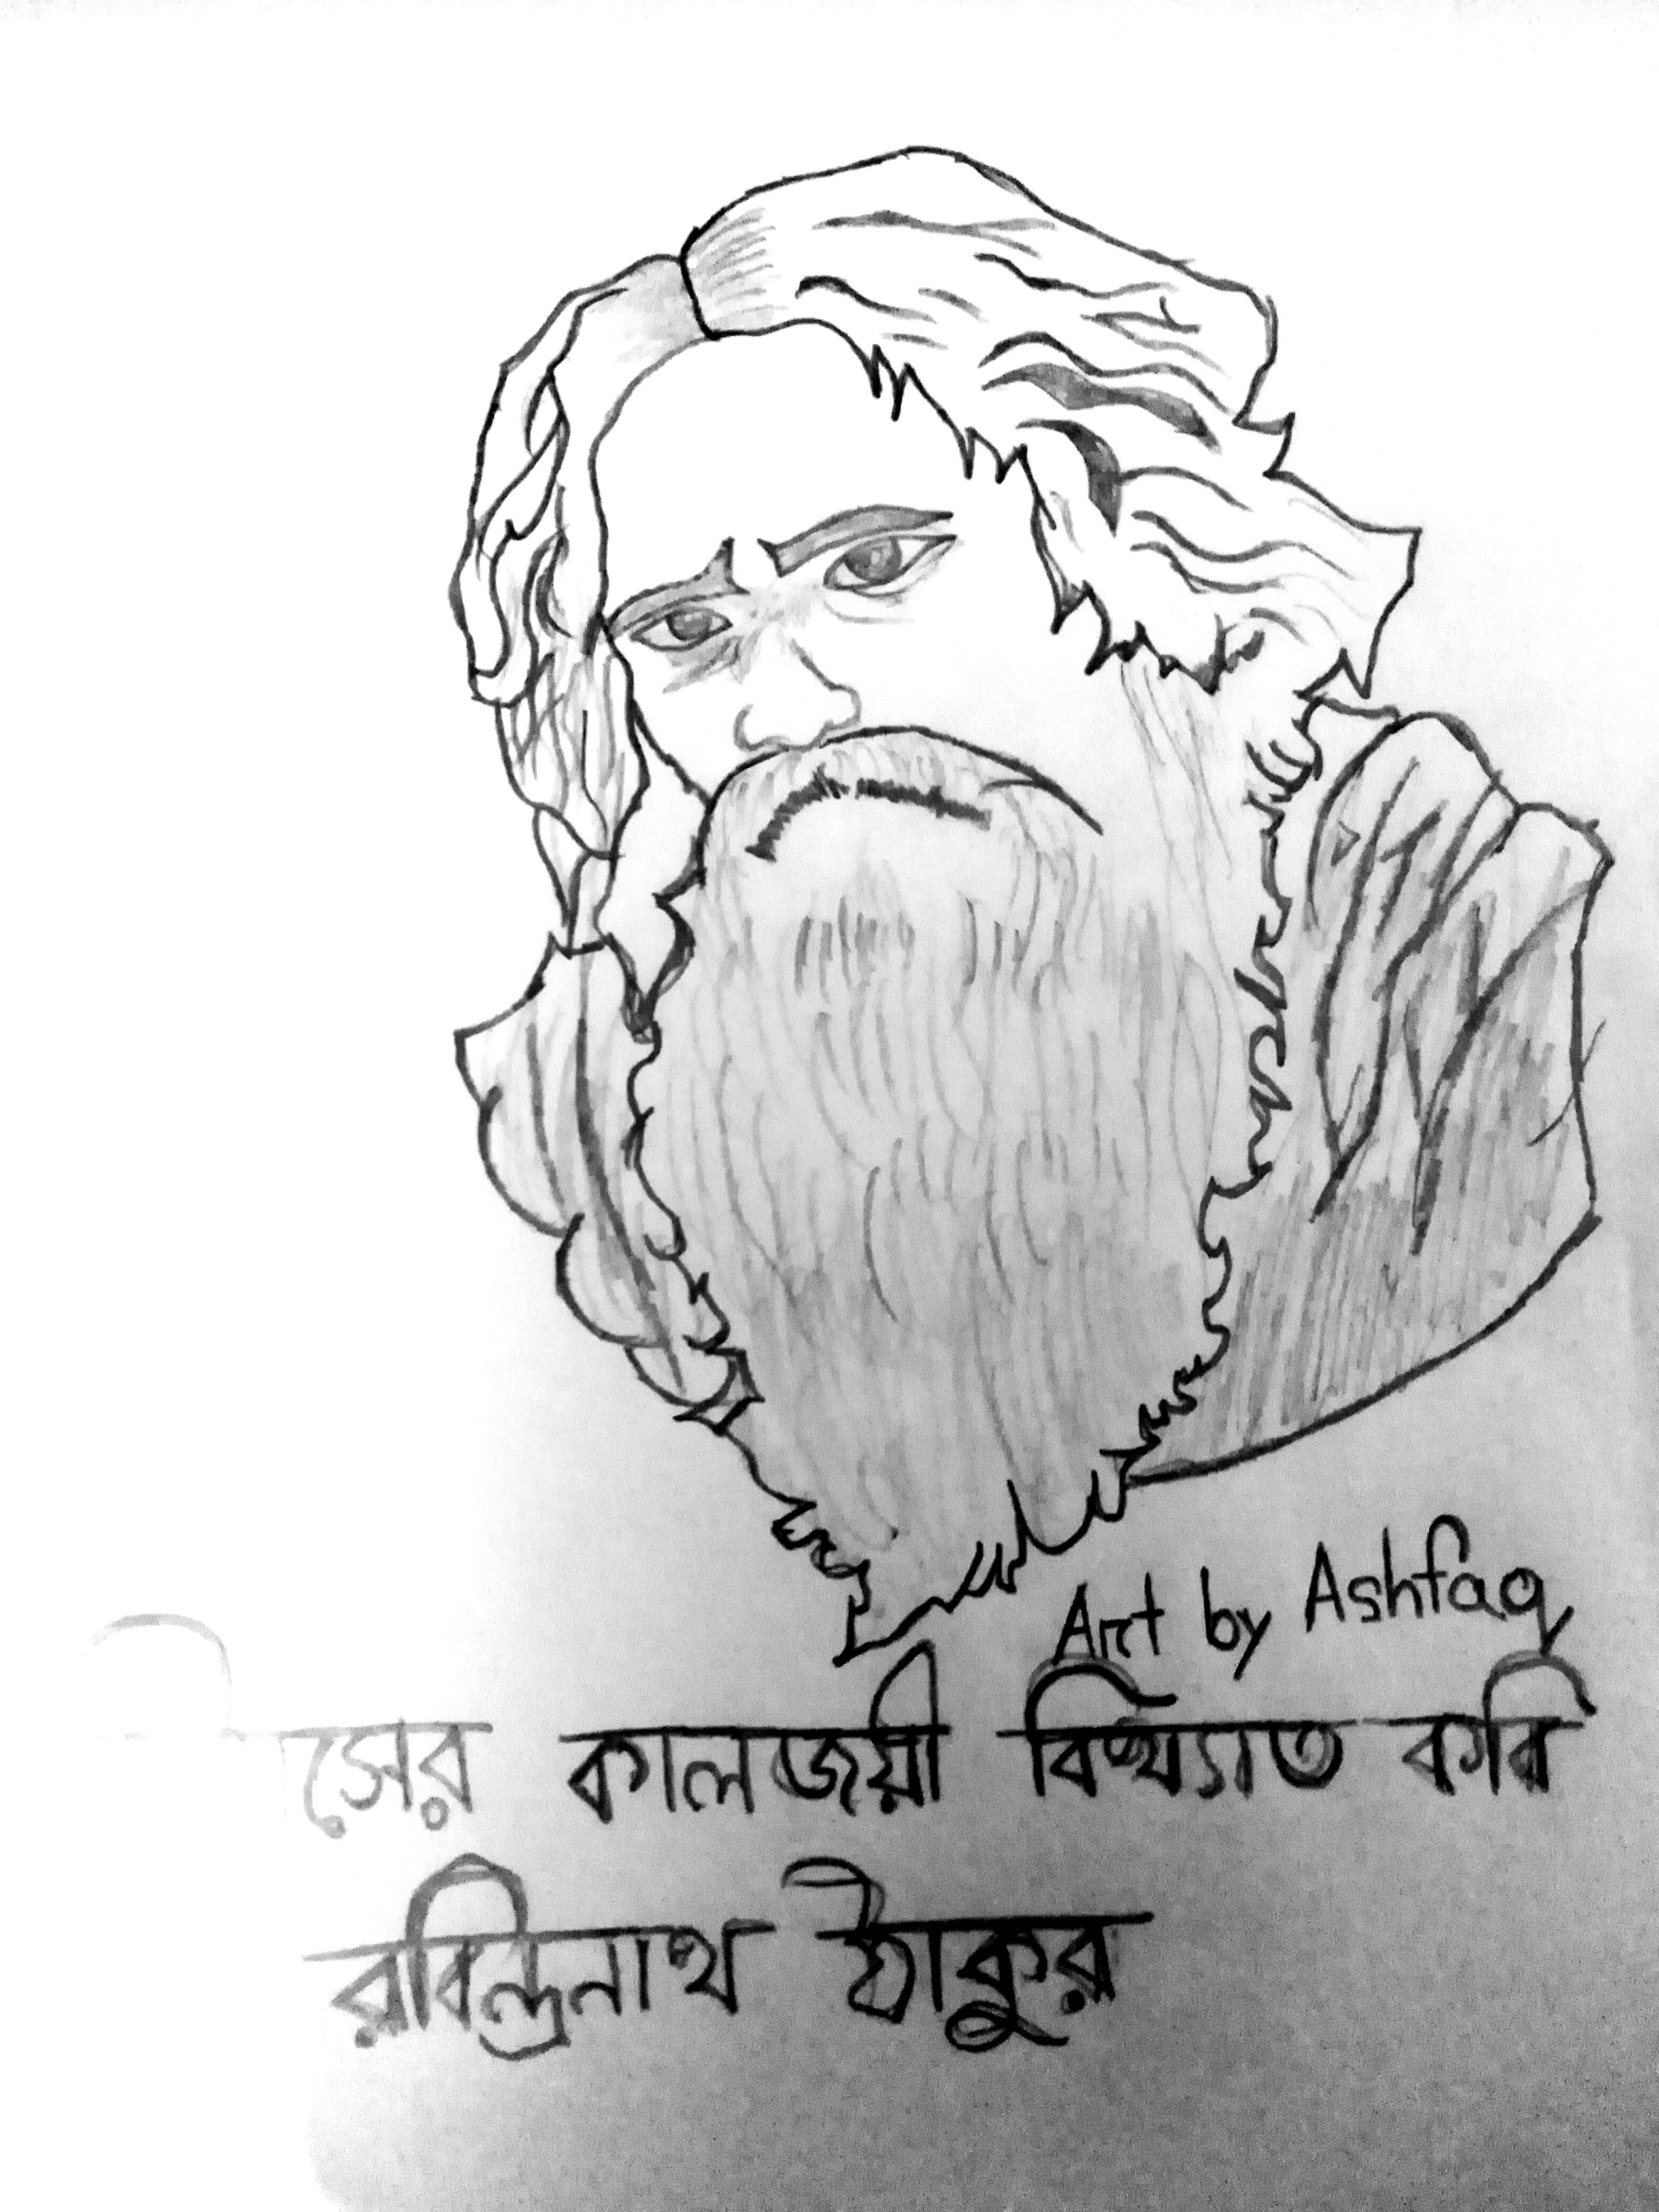 Art by Ashfaq
কালজয়ী বিখ্যাত কবি
রবিন্দ্রনাথ ঠাকুর